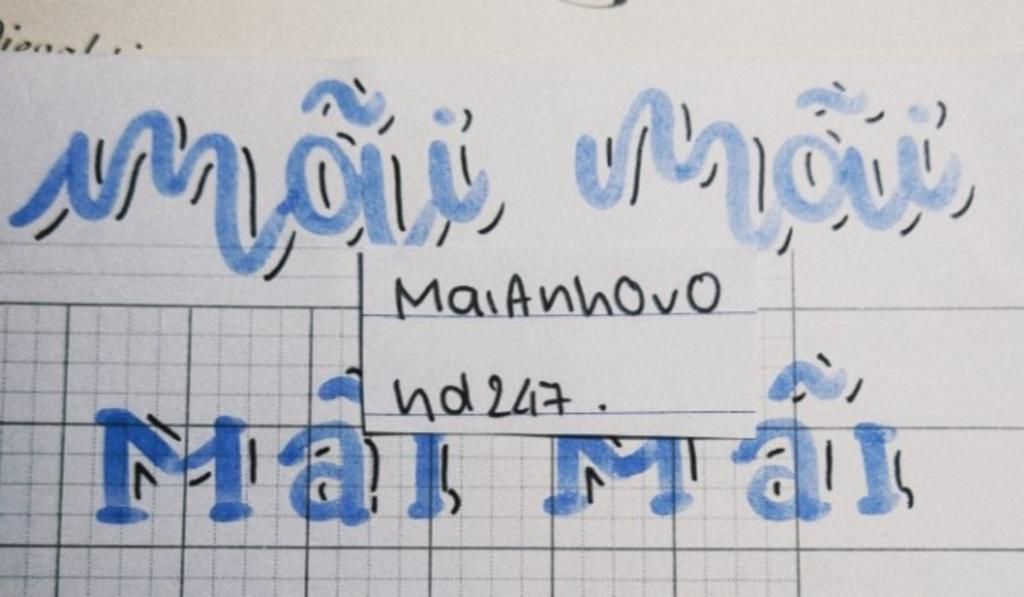 mãi mãi
MaiAnhOvO
hd247.
Mãi Mãi